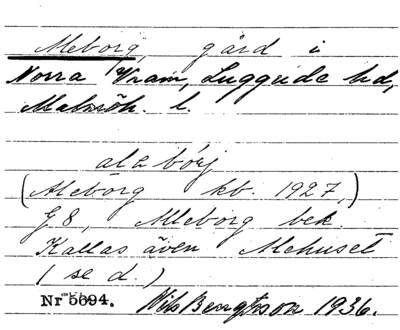 Aleborg, gård i
Norra Vram, Luggude hd,
Malmöh. l.
alabörj
(Aleborg kb. 1927,)
G 8, Alleborg bek.
Kallas även Alehuset
(se d.)
Nr 5694. Nils Bengtsson 1936.